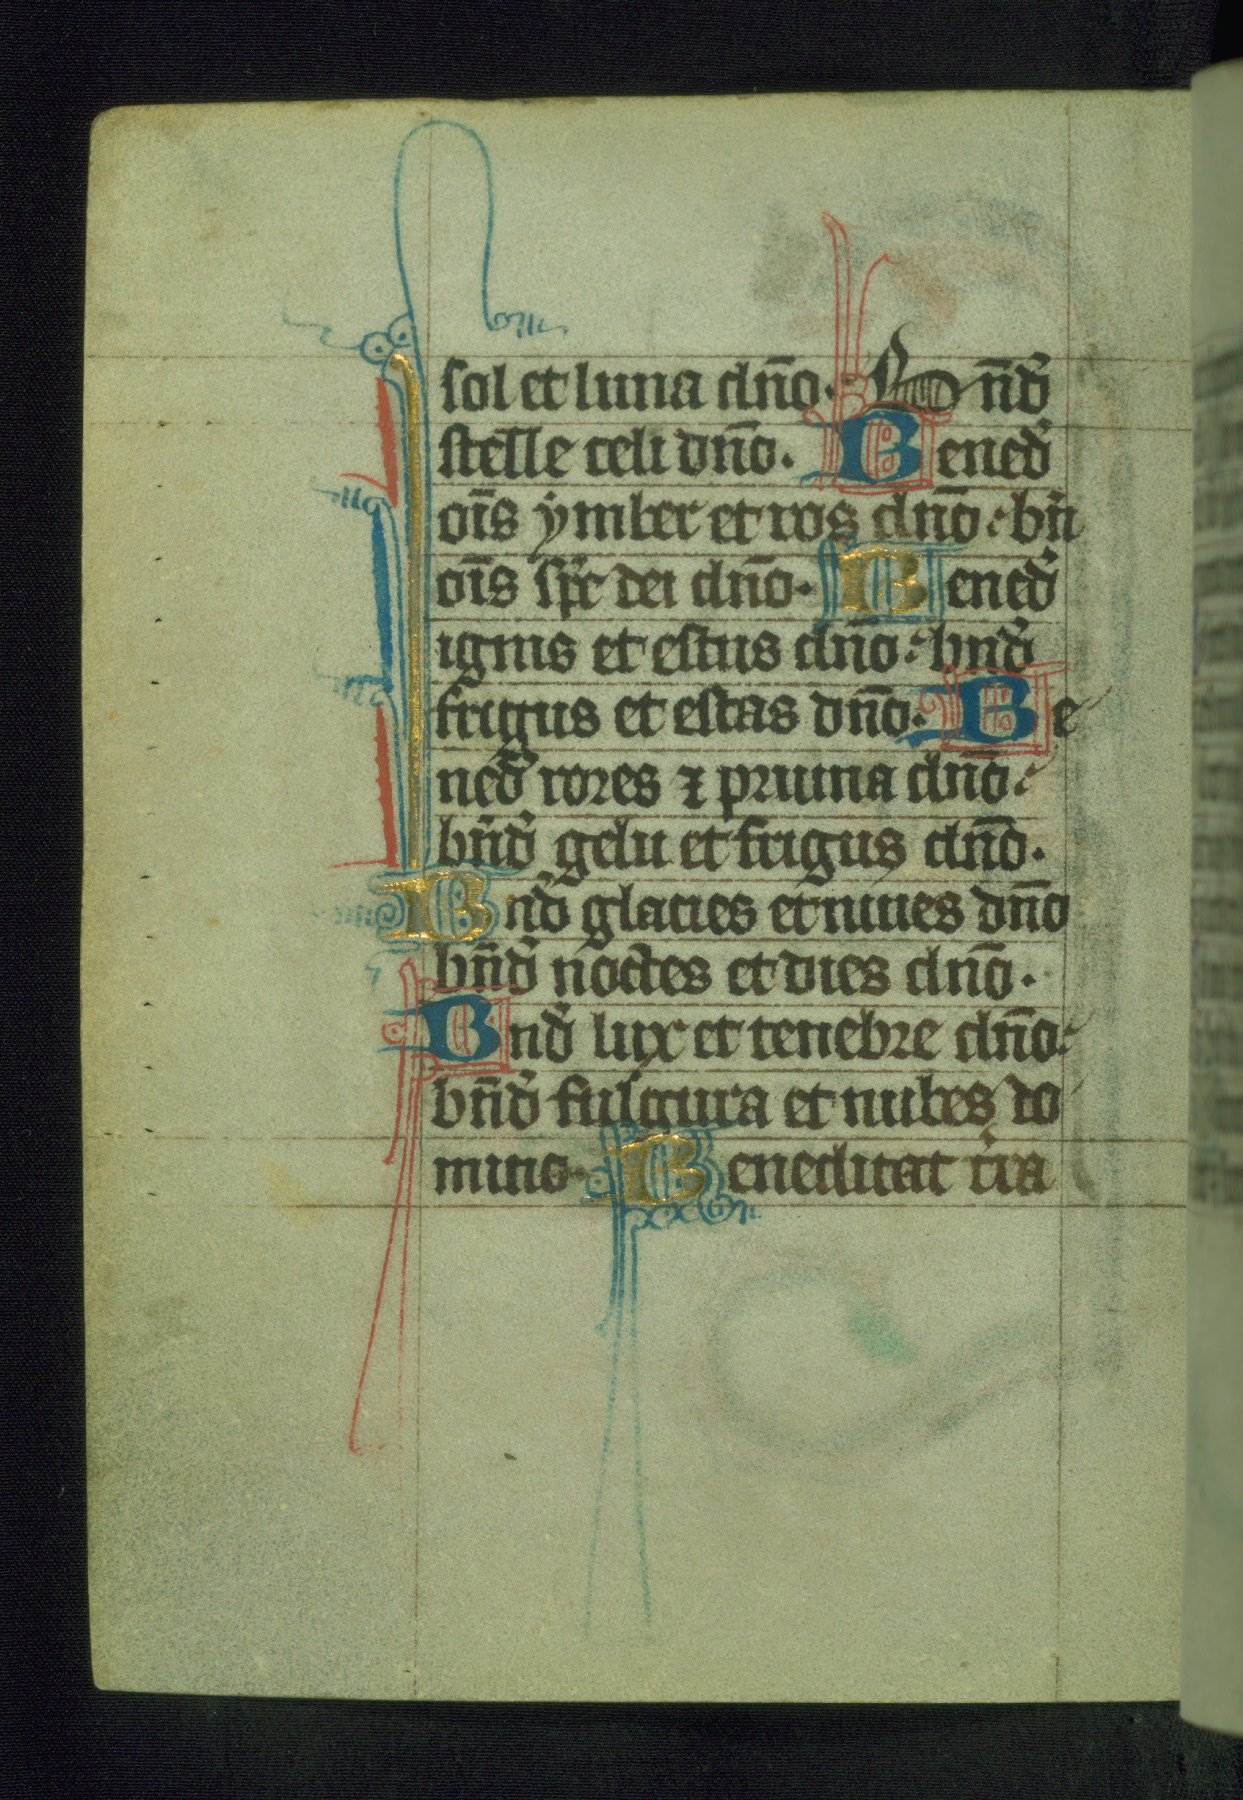 sol et luna dn̄o. Bn̄d̕
stelle celi dn̄o. Bened̕
oīs ẏmber et ros dn̄o. bn̄
oīs sp̄c dei dn̄o. Bened̕
ignis et estus dn̄o. bnd̕
frigus et estas dn̄o. Be
ned̕ rores ⁊ pruina dn̄o.
bn̄d̕ gelu et frigus dn̄o.
Bnd̕ glacies et niues dn̄o
bn̄d̕ noctes et dies dn̄o.
Bnd̕ lux et tenebre dn̄o.
bn̄d̕ fulgura et nubes do
mino. Benedicat t̕ra